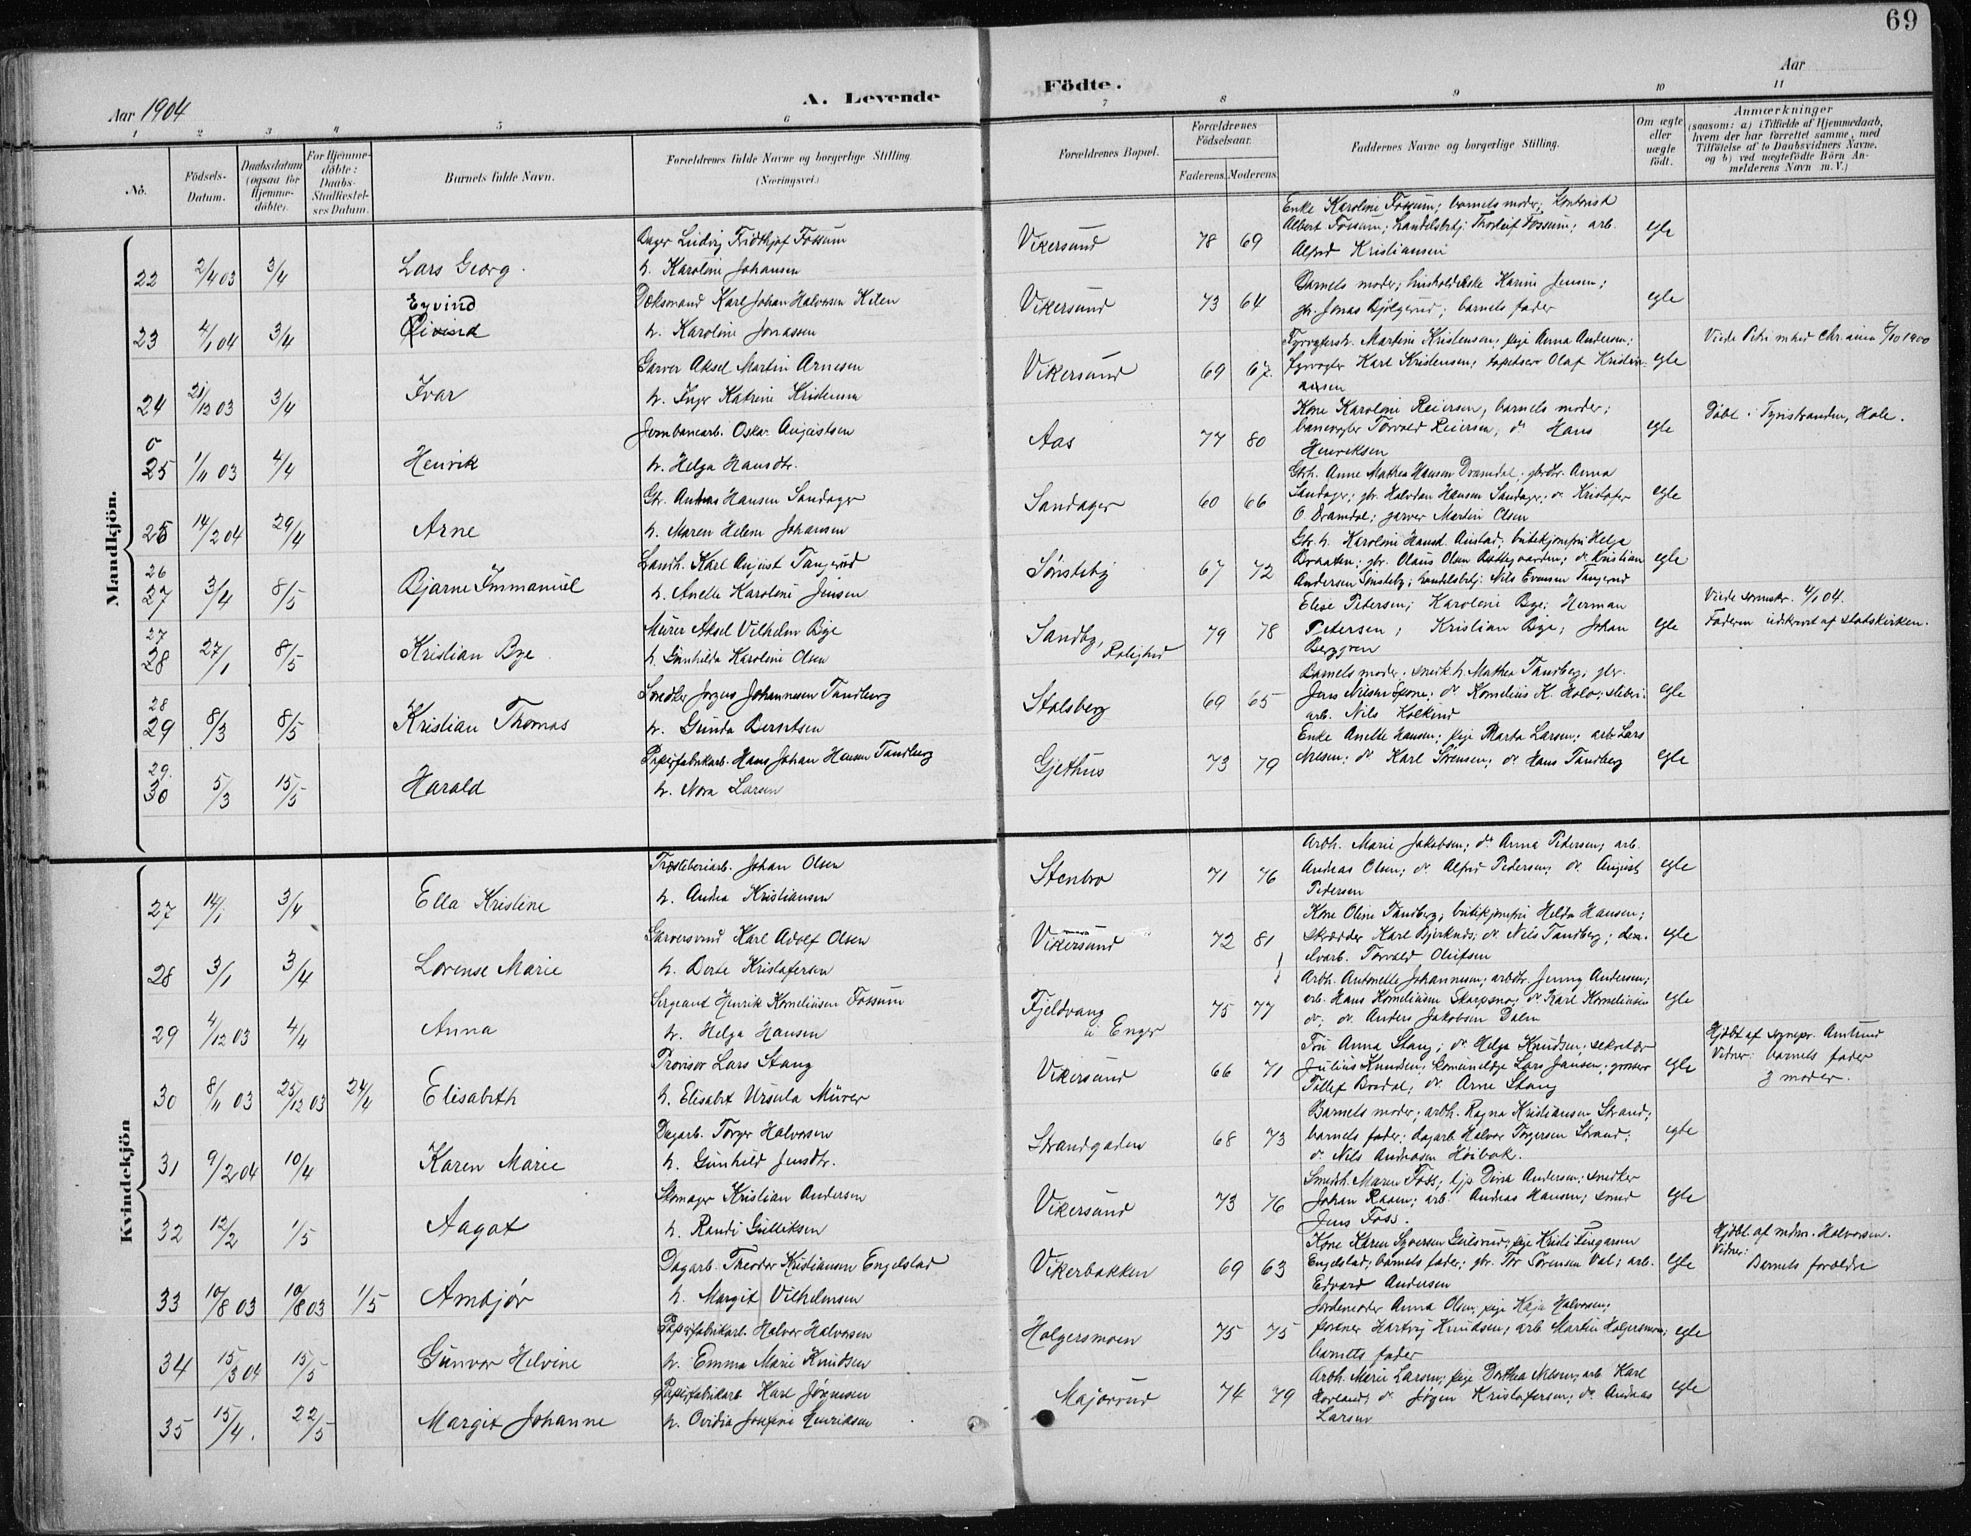 69
Aar 1904
A. Levende Födte.
Aar
1 2 3 4 5 6 7 8 9 10 11
No.
Födsels-Datum.
Daabsdatum (ogsaa for Hjemme-döbte).
For Hjemme-döbte: Daabs-Stadfæstel-ses Datum.
Barnets fulde Navn.
Forældrenes fulde Navne og borgerlige Stilling. (Næringsvei.)
Forældrenes Bopæl.
Forældrenes Födselsaar.
Faderens. Moderens.
Faddernes Navne og borgerlige Stilling.
Om ægte eller uægte födt.
Anmærkninger
(saasom: a) i Tilfælde af Hjemmedaab, hvem der har forrettet samme, med Tilföielse af to Daabsvidners Navne, og b) ved uægtefödte Börn An-melderens Navn m.V.)
Mandkjön.
22 2/4 03 3/4 Lars Georg.
Bager Ludvig Fridthjof Fossum
h. Karoline Johansen
Vikersund 78 69
Enke Karoline Fossum; barnels moder; Kontorist
Albert Fossum; handelsbetj. Thorleif Fossum; arb.
Alfred Kristiansen
egte
Eyvind
23 4/1 04 3/4 Øivind
Karl Johan Halvorsen Kilen
h. Karoline Jonassen
Vikersund 73 64
Barnels moder; Karine Jensen;
gbr. Jonas Bjølgerud; barnels fader
egte
24 21/12 03 3/4 Ivar
Garver Aksel Martin Arnesen
h. Inger Katrine Kristensen
Vikersund 69 67.
Martine Kristensen; pige Anna Andersen;
Fyrvogter Karl Kristensen; Olaf Kristian-
ansen
egte
25 1/11 03 4/4 Henrik
Jernbanearb. Oskar Augustsen
h. Helga Hansdtr.
Aas 77 80
Kone Karoline Reiersen, barnels moder;
banevogter Torvald Reiersen; do Hans
Henriksen
egte
Døbt i Tyristranden, Hole.
25 14/2 04 29/4 Arne
Gbr. Hansen Sandager
h. Maren Helene Johansen
Sandager 60 66
Gbrh. Anne Mathea Hansen Dramdal; gbrdtr. Anna
Sandager; gbr. Halvdan Hansen Sandager; do Kristofer
O Dramdal; garver Martin Olsen
egte
26
27 3/4 8/5 Bjarne Immanuel
Landh. Karl August Tangerud
h. Anette Karoline Jensen
Sønsteby 67 72
Braaten; gbr. Olaus Olsen; do Kristian
Andersen Sønsteby; handelsbetj. Nils Evensen Tangerud
egte
27
28 27/1 8/5 Kristian Bye
Murer Aksel Vilhelm Bye
h. Gunhilda Karoline Olsen
Sandby, Rolighed 79 78
Elise Petersen; Karoline Bye; Herman
Petersen; Kristian Bye; Johan
Berggren
egte
Faderen udtraadt af statskirken.
28
29 8/3 8/5 Kristian Thomas
Snedker Jørgen Johannesen Tandberg
h. Gunda Berntsen
Stalsberg 69 65
Barnels moder; snedk. h. Mathea Tandberg; gbr.
Jens Nilsen Spone; do Kornelius K. Holo; sliberi-
arb. Nils
egte
29.
30 5/3 15/5 Harald
Papirfabrikarb. Hans Johan Hansen Tandberg
h. Nora Larsen
Gjethus 73 79
Enke Anette Hansen; pige Marta Larsen; arb. Lars
Nilsen; do Karl Sørensen; do Hans Tandberg
egte
Kvindekjön
27 14/1 3/4 Ella Kristine
Træsliberiarb. Johan Olsen
h. Andrea Kristiansen
Stenbro 71 76
Arbh. Marie Jakobsen; do Anna Pedersen; arb.
Andreas Olsen; do Alfred Pedersen; do August
Pedersen
egte
28 3/1 3/4 Lovense Marie
Garversvend Karl Adolf Olsen
h. Berte Kristofersen
Vikersund 72 81
Kone Oline Tandberg; butikjomfru Helda Hansen;
skrædder Karl Bjerknes; do Nils Tandberg;
Torvald Olufsen
egte
29 4/12 03 4/4 Anna
Sergeant Henrik Korneliusen Fossum
h. Helga Hansen
Fjeldvang
u. Enger 75 77
Arbh. Antonette Johannesen; arbdtr. Jenny Andersen;
arb. Hans Korneliusen Skarpsno; do Karl Korneliusen
do; do Anders Jakobsen Dalen
egte
30 8/11 03 25/12 03 24/4 Elisabeth
Provisor Lars Stang
h. Elisabet Ursula Mürer
Vikersund 66 71
Fru Anna Stang; do Helga Knudsen; sekretær
Julius Knudsen; Lars Jansen; grosser
Tellef Bredal; do Arne Stang
egte
Hjdbt af sognepr. Amlund
Vidner: barnels fader
& moder.
31 9/2 04 10/4 Karen Marie
Dagarb. Torger Halvorsen
h. Gunhild Jensdtr.
Strandgaden 68 73
Barnels moder; arbh. Ragna Kristiansen Strand;
barnels fader; dagarb. Halvor Torgersen Strand;
do Nils Andreasen Høibak.
egte
32 12/2 1/5 Aagot
Skomager Kristian Andersen
h. Randi Gulliksen
Vikersund 73 76
Smedh. Maren Foss; tjp. Dina Andersen; snedker
Johan Raaen; arb. Andreas Hansen; smed
Jens Foss.
egte
33 10/8 03 10/8 03 1/5 Ambjør
Dagarb. Theodor Kristiansen Engelstad
h. Margit Vilhelmsen
Vikerbakken 69 63
Kone Karen Syversen Gulsrud; pige
Engelstad; barnels fader; gbr. Tor Sørensen Val; arb.
Edvard Andersen
egte
Hjdbt. af Halvorsen.
Vidner:
Barnets forældre
34 15/3 04 15/5 Gunvor Helvine
Papirfabrikarb. Halvor Halvorsen
h. Emma Marie Knudsen
Holgersmoen 75 75
Jordemoder Anna Olsen; pige Kaja Halvorsen;
Hartvig Knudsen; arb. Martin Holgersmoen;
barnets fader
egte
35 15/4. 22/5 Margit Johanne
Papirfabrikarb Karl Jørgensen
h. Ovidia Josefine Henriksen
Majorrud 74 79
Arbh. Marie Larsen; pige Dorthea Nilsen; arb. Karl
Hovland; do Jørgen Kristofersen; do Andreas
Larsen
egte